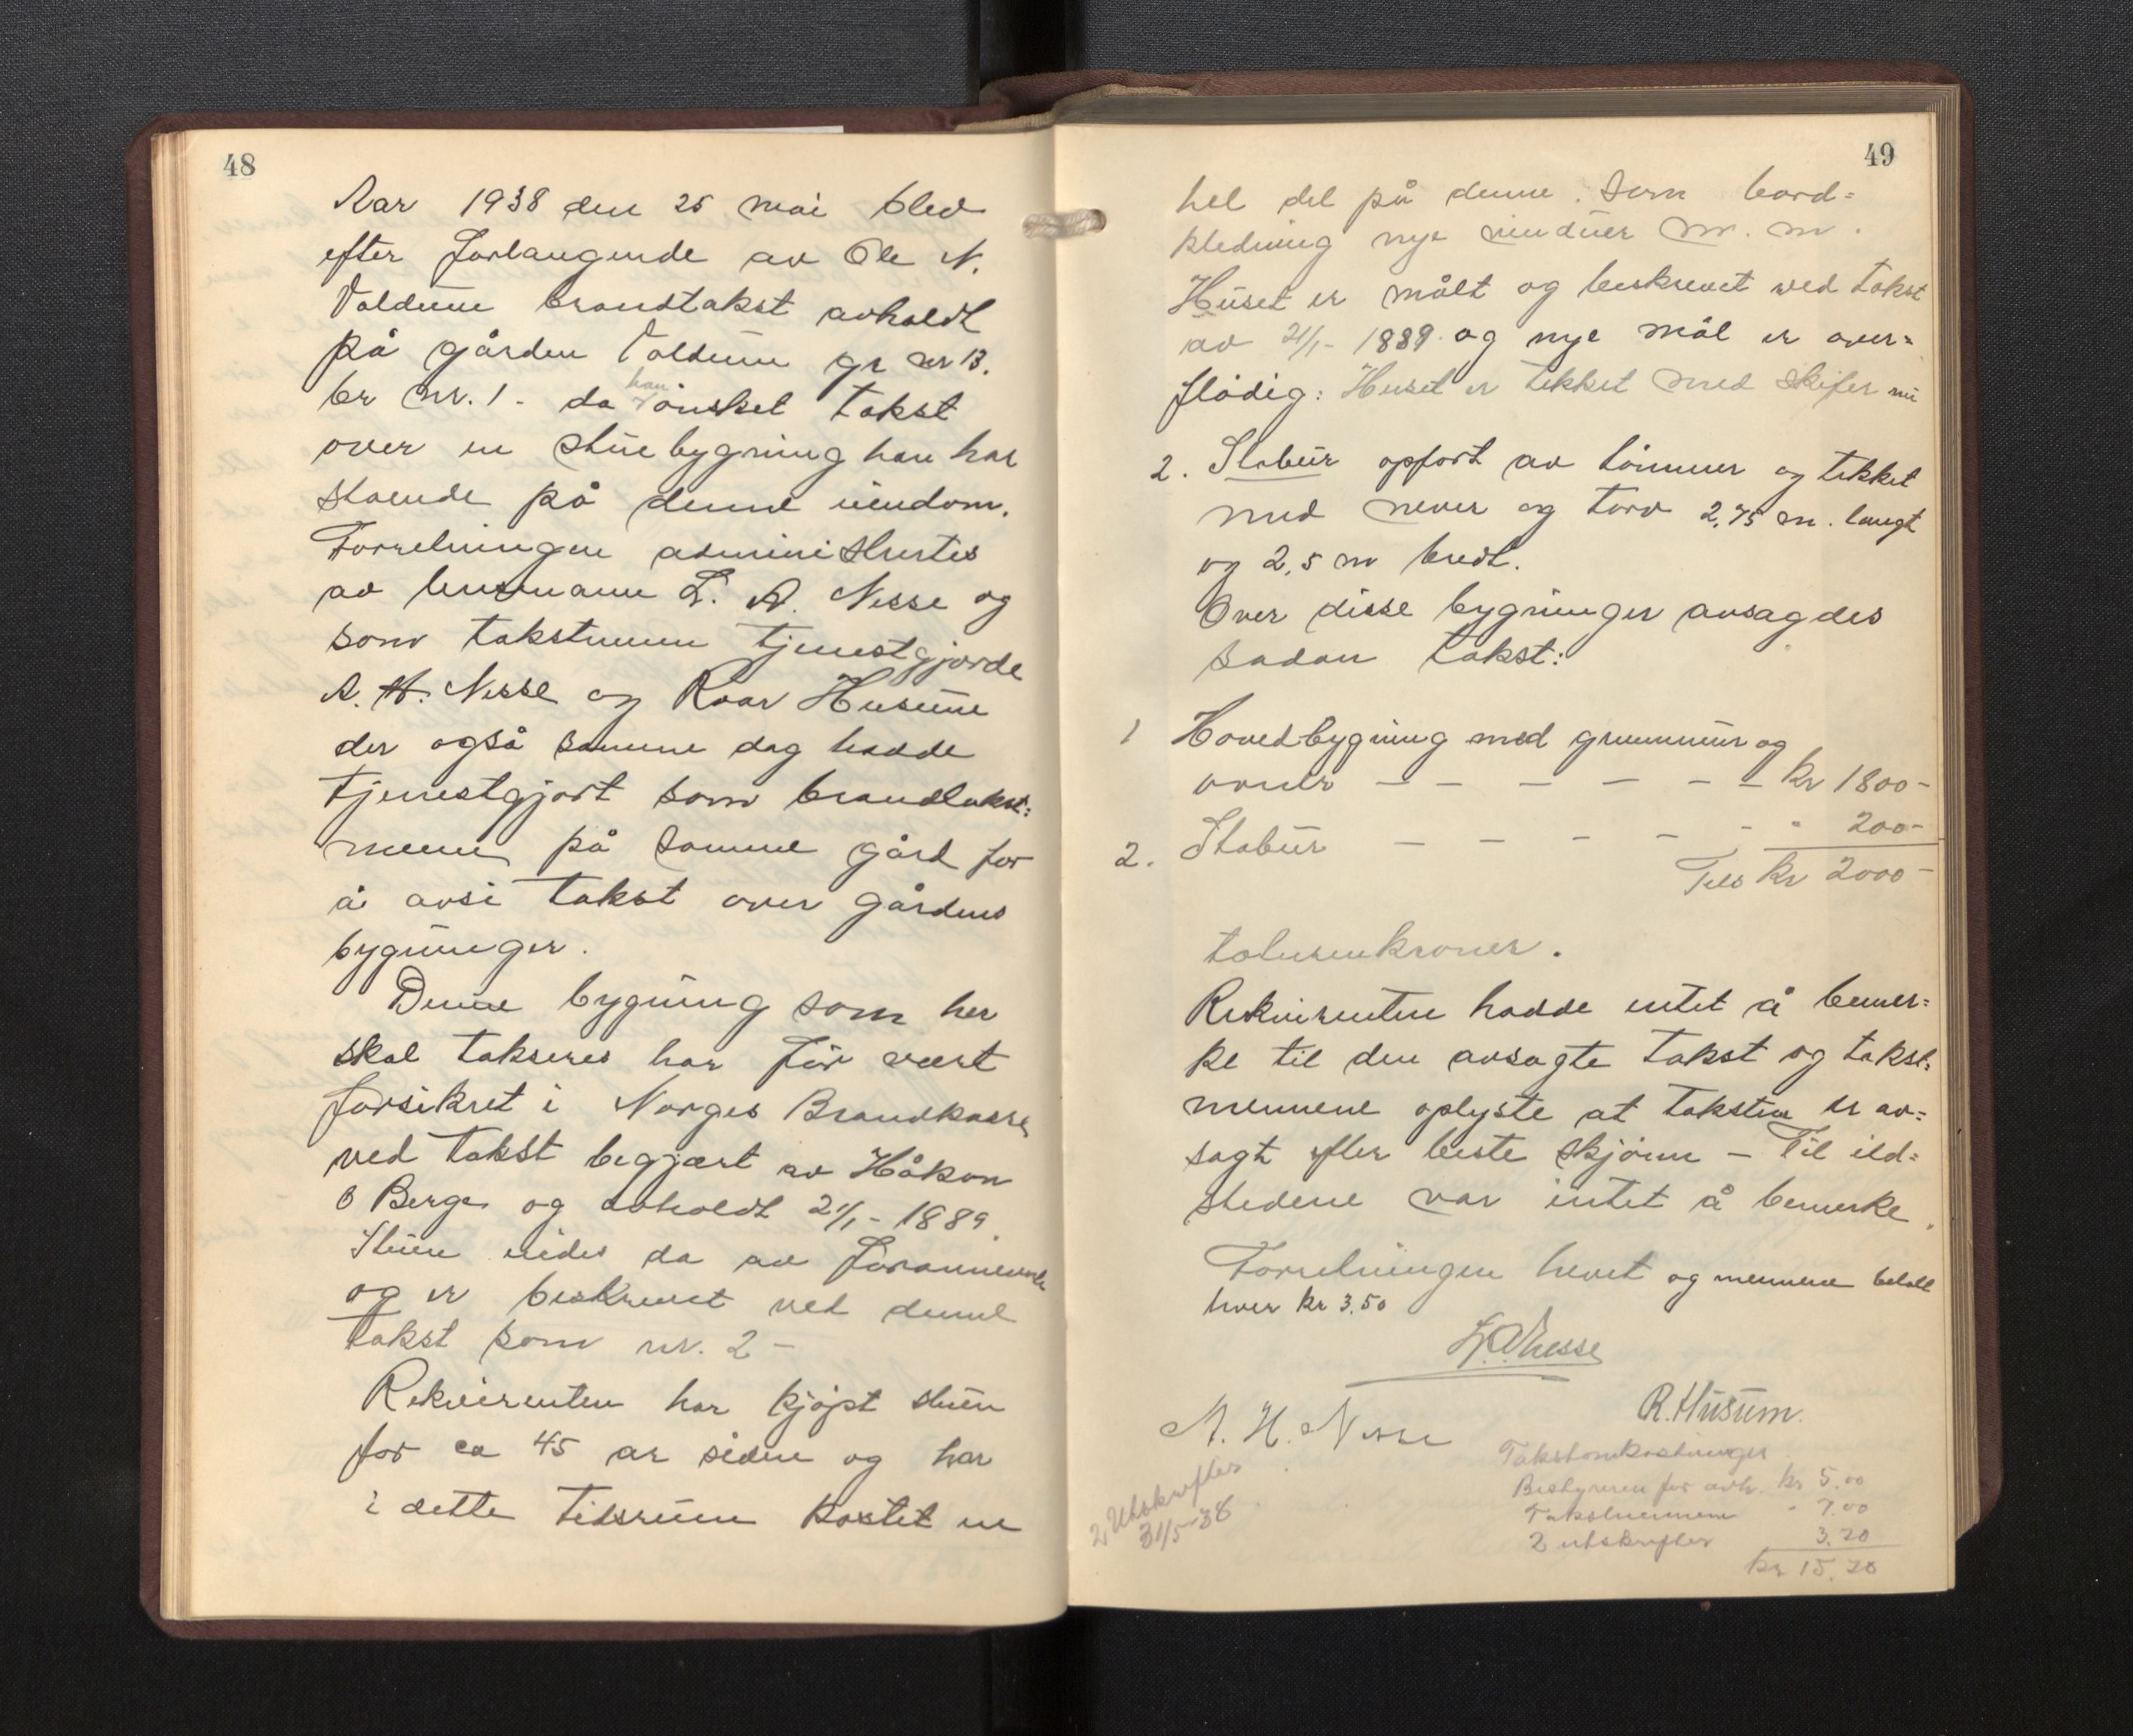 48
Aar 1938 den 25 mai blev
efter forlangende av Ole N.
Voldum brandtakst avholdt
på gården Voldum gr nr 13.
br nr. 1 - da han ønsket takst
over en stuebygning han har
staende på denne eiendom.
Forretningen administrertes
av lensmann L. A. Nesse og
som takstmenn tjenestgjorde
A. H. Nesse og Roar Husum
der også samme dag hadde
tjenestgjort som brandtakst=
menn på samme gård for
å avsi takst over gårdens
bygninger.
Denne bygning som her
skal takseres har før vært
forsikret i Norges Brandkasse
ved takst begjært av Håkon
O Berge og avholdt 21/1 - 1889.
Stuen eides da av forannevnte
og er beskrevet ved denne
takst som nr. 2 -
Rekvirenten har kjøpt stuen
for ca 45 ar siden og har
i dette tidsrum kostet en
49
hel del på denne. som bord=
kledning nye vinduer m. m.
Huset er målt og beskrevet ved takst
av 21/1 - 1889 og nye mål er over=
flødig: Huset er tekket med skifer nu
2. Stabur opført av tømmer og tekket
med never og torv 2,75 m. langt
og 2,5 m bredt.
Over disse bygninger avsagdes
sadan takst:
1 Hovedbygning med grunnmur og
ovner — — — — — — kr 1800 -
2. Stabur — — — — - " 200 -
Tils kr 2000 -
totusenkroner.
Rekvirenten hadde intet å bemer=
ke til den avsagte takst og takst=
mennene oplyste at taksten er av=
sagt efter beste skjønn — Til ild=
stedene var intet å bemerke.
Forretningen hevet og mennene betalt
hver kr 3.50
L. A. Nesse
A. H. Nesse
R. Husum.
2 Utskrifter
31/5-38
Takstomkostninger
Bestyreren for avh. kr 5.00
Takstmennene " 7.00
2 utskrifter 3.20
kr 15.20